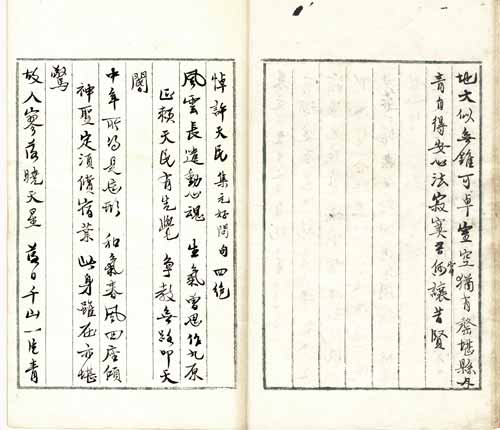 地大似無錐可卓 室空猶有磬堪縣 丹
青自得安心法 寂寞吾何讓昔賢
常
悼許天民 集元好問句 四絕
風雲長遣動心魂 生氣曾思作九原
正賴天民有先覺 爭教無路叩天
閽
中年所得是忘形 和氣春風四座傾
神聖定須償宿業 此身雖在亦堪
驚
故人寥落曉天星 落日千山一片青